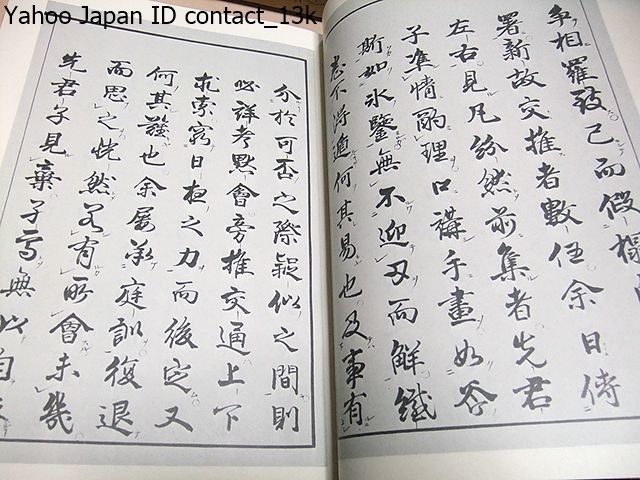 Yahoo Japan ID contact_13k
争相羅致已而假
署新故交推者數任余日侍
左右見凡紛然前集者先君
子準情酌理口講手畫如谷
斯如氷鑒無不迎刃而解纖
悉不得遁何其易也及事有
介於可否之際疑似之間則
必詳考默會旁推交通上下
求索窮日夜之力而後定又
何其難也余屢承庭訓復退
而思之恍然若有所會未幾
先君子見棄予焉無以自